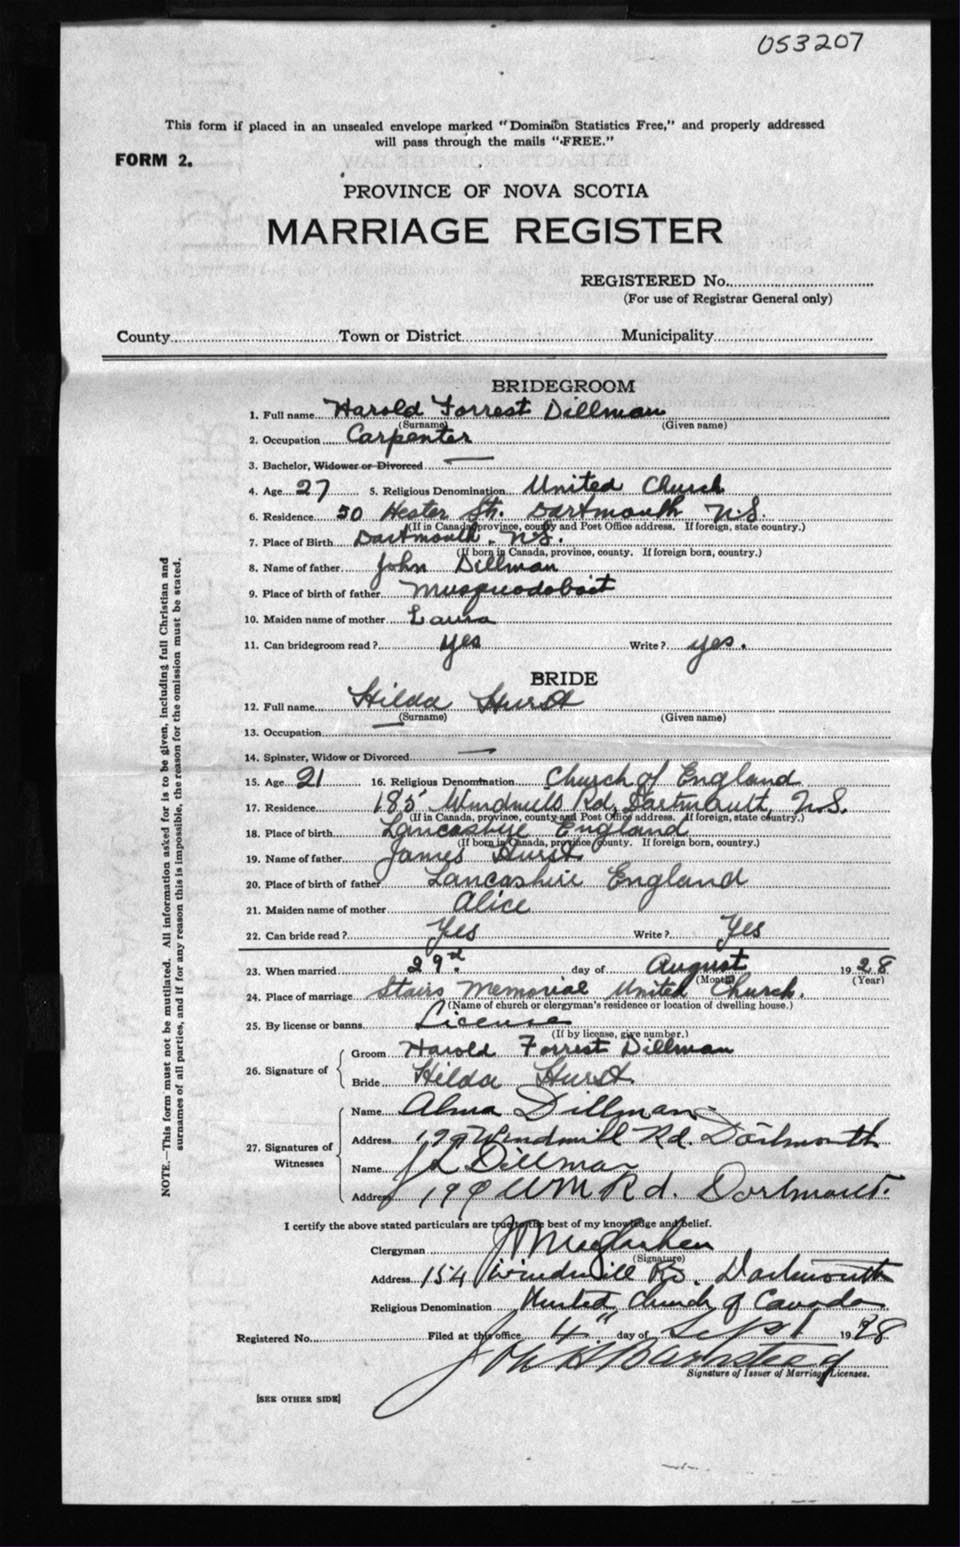 053207
This form if placed in an unsealed envelope marked "Dominion Statistics Free," and properly addressed
will pass through the mails "FREE."
FORM 2.
PROVINCE OF NOVA SCOTIA
MARRIAGE REGISTER
REGISTERED No.
(For use of Registrar General only)
County Town or District Municipality
BRIDEGROOM
1. Full name Harold Forrest Dillman
(Surname) (Given name)
2. Occupation Carpenter
3. Bachelor, Widower or Divorced —
4. Age 27 5. Religious Denomination United Church
6. Residence 50 Hester St. Dartmouth N.S.
(If in Canada, province, county and Post Office address. If foreign, state country.)
7. Place of Birth Dartmouth. N.S.
(If born in Canada, province, county. If foreign born, country.)
8. Name of father John Dillman
9. Place of birth of father Musquodoboit
10. Maiden name of mother Laura
11. Can bridegroom read? yes Write? yes.
BRIDE
12. Full name Hilda Hurst
(Surname) (Given name)
13. Occupation —
14. Spinster, Widow or Divorced —
15. Age 21 16. Religious Denomination Church of England
17. Residence 185 Windmill Rd, Dartmouth, N.S.
(If in Canada, province, county and Post Office address. If foreign, state country.)
18. Place of birth Lancashire England
(If born in Canada, province county. If foreign born, country.)
19. Name of father James Hurst
20. Place of birth of father Lancashire England
21. Maiden name of mother Alice
22. Can bride read? Yes Write? Yes
23. When married 29th. day of August 1928
(Month) (Year)
24. Place of marriage Stairs Memorial United Church.
(Name of church or clergyman's residence or location of dwelling house.)
25. By license or banns License
(If by license, give number.)
26. Signature of Groom Harold Forrest Dillman
Bride Hilda Hurst.
27. Signatures of Witnesses
Name Alma Dillman
Address 199 Windmill Rd. Dartmouth
Name J L Dillman
Address 199 WM Rd. Dartmouth.
I certify the above stated particulars are true to the best of my knowledge and belief.
Clergyman
(Signature)
Address 154 Windmill Rd. Dartmouth
Religious Denomination United Church of Canada
Registered No. Filed at this office 4" day of Sept 1928
Signature of Issuer of Marriage Licenses.
[SEE OTHER SIDE]
NOTE.—This form must not be mutilated. All information asked for is to be given, including full Christian and
surnames of all parties, and if for any reason this is impossible, the reason for the omission must be stated.